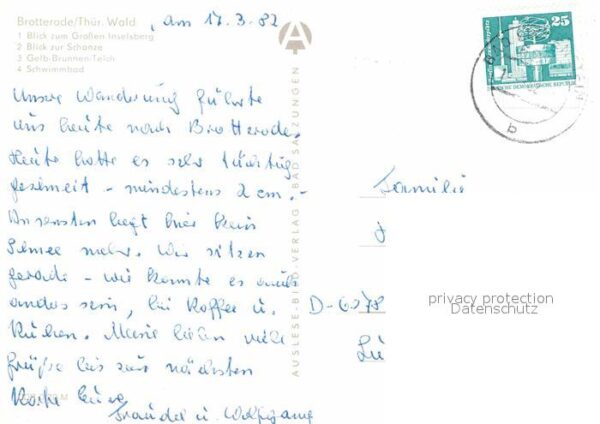 Brotterode/Thür. Wald
1 Blick zum Großen Inselsberg
2 Blick zur Schanze
3 Gelb-Brunnen-Teich
4 Schwimmbad
, am 17.3.82
Unsere Wanderung führte
uns heute nach Brotterode.
Heute hatte es sehr tüchtig
geschneit - mindestens 2 cm. -
Ansonsten liegt hier kein
Schnee mehr. Wir sitzen
gerade - wie könnte es auch
anders sein, bei Kaffee u.
Kuchen. Meine lieben viele
Grüße bis zur nächsten
Karte Eure
Traudel u. Wolfgang
AUSLESE-BILD-VERLAG BAD SALZUNGEN
25
DEUTSCHE DEMOKRATISCHE REPUBLIK
b
Familie
J
D-6378
Lü
privacy protection
Datenschutz